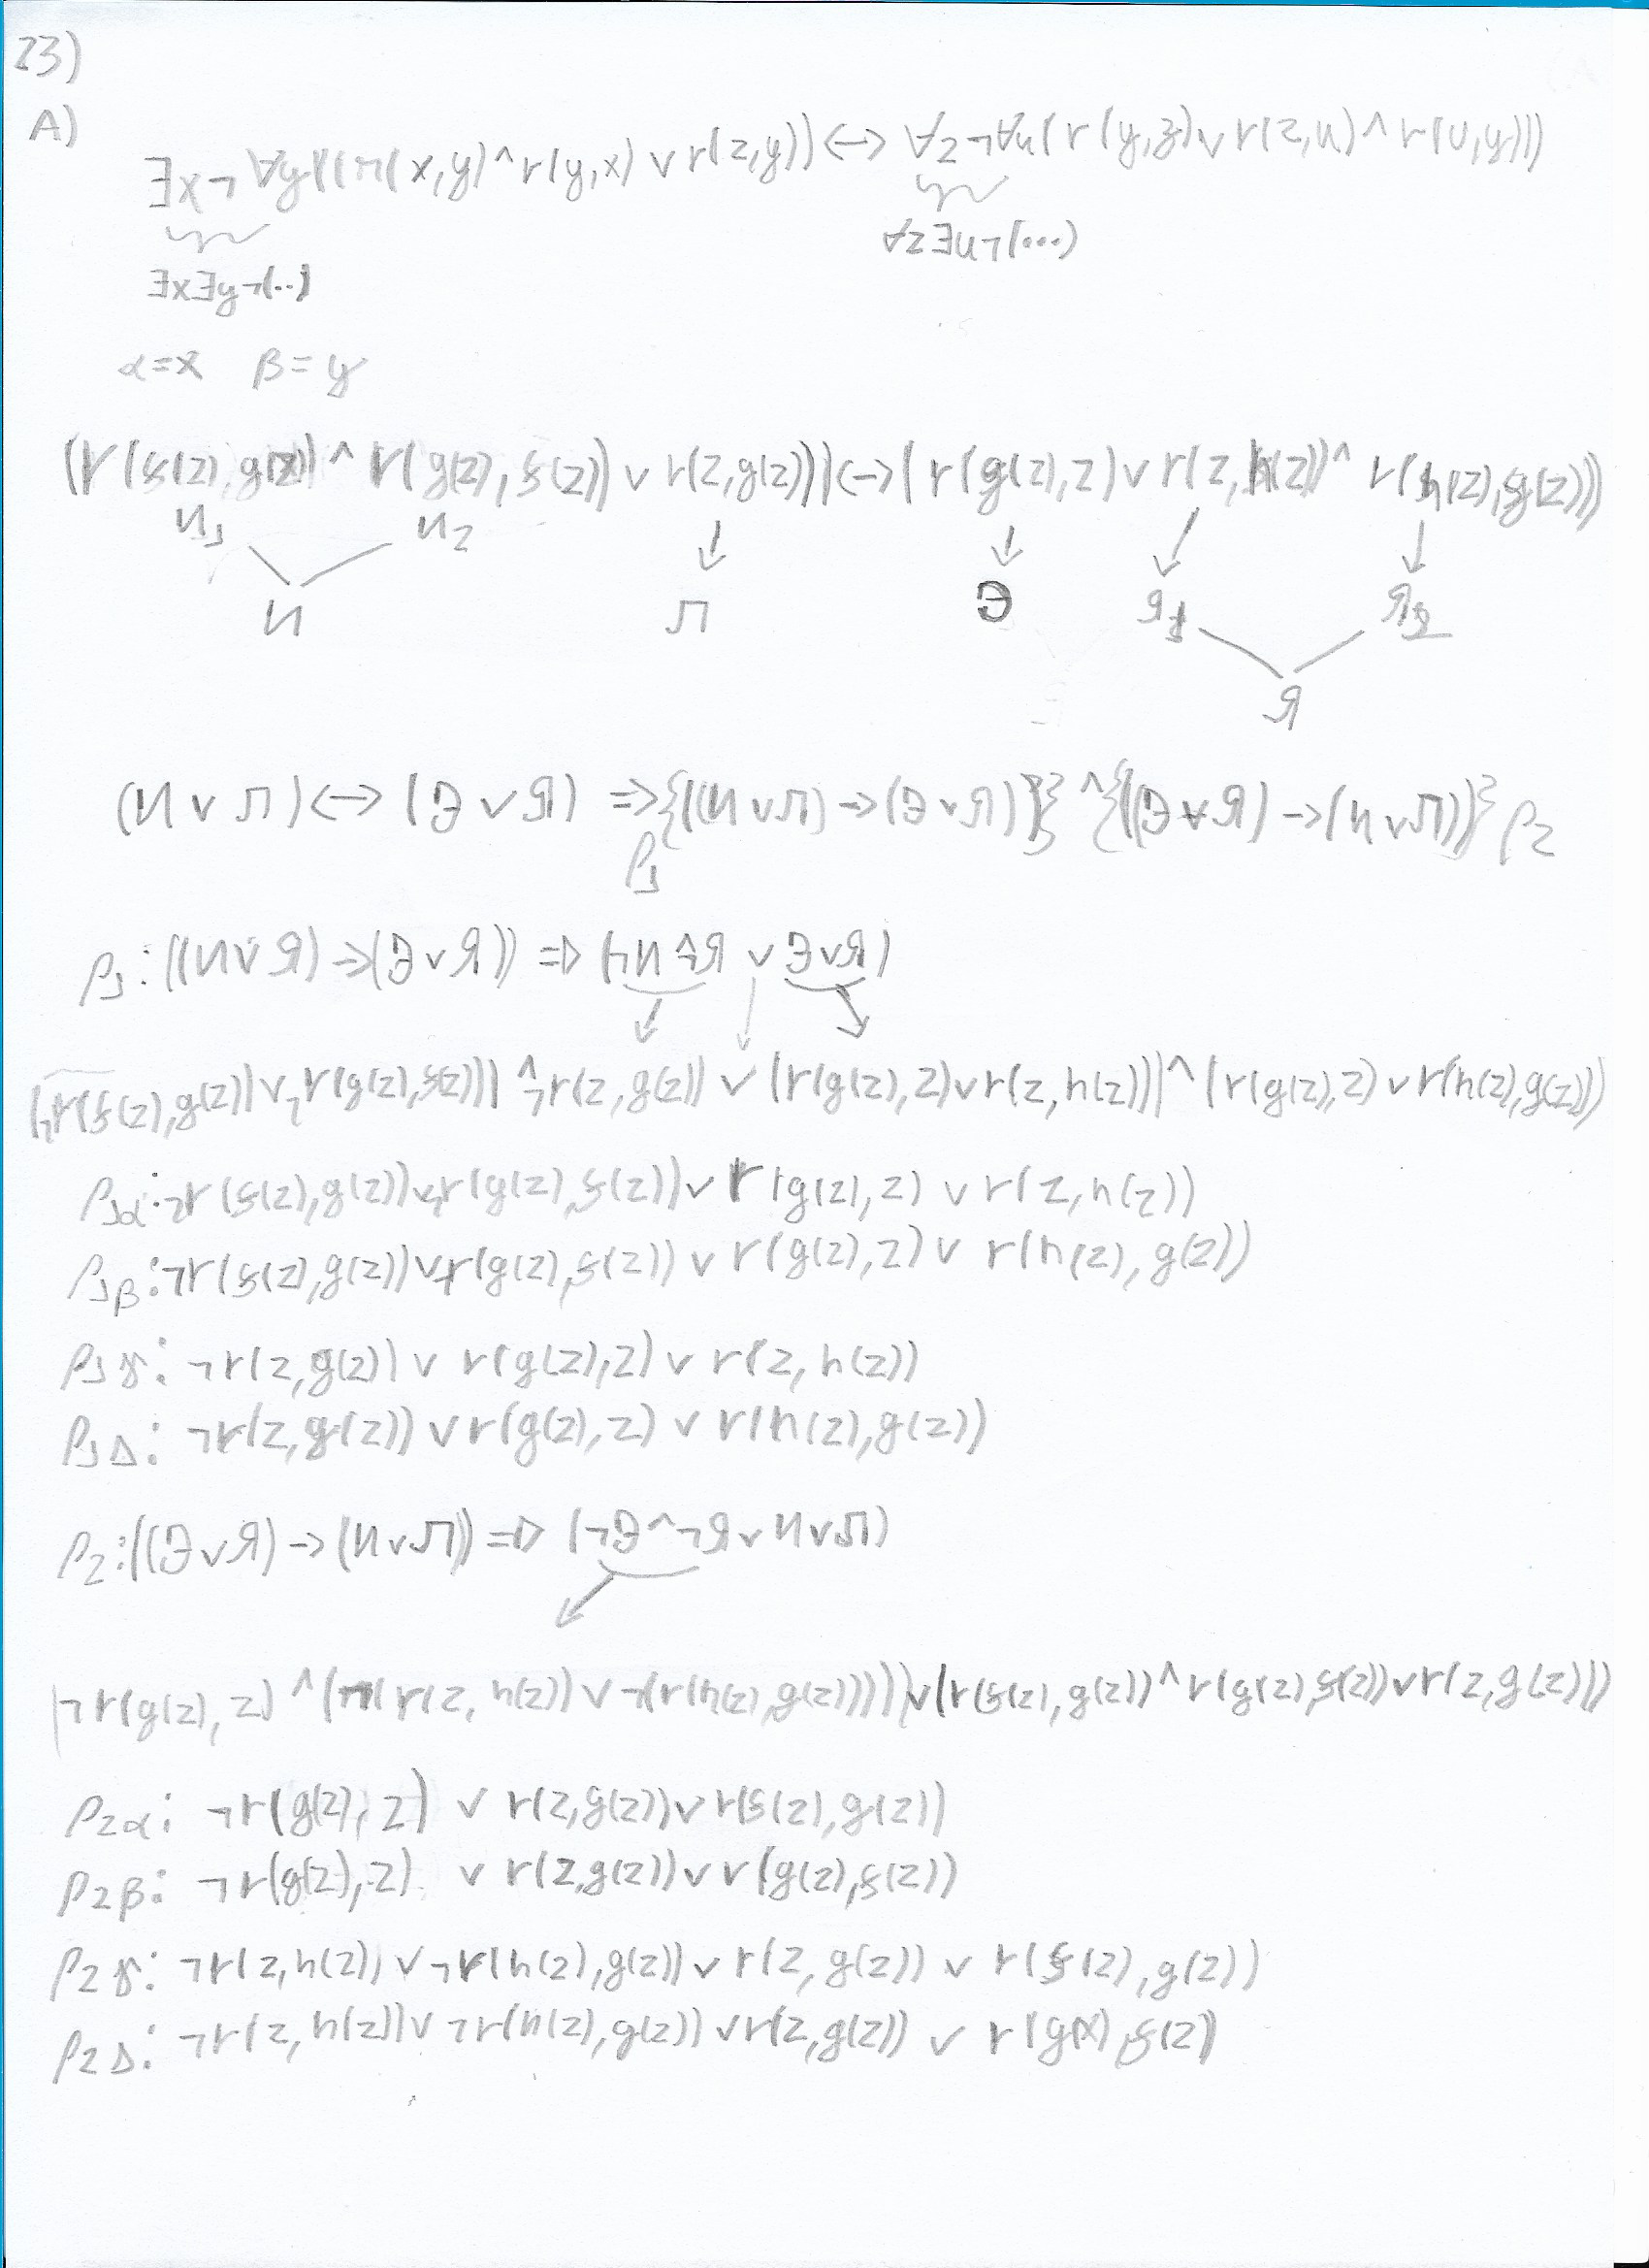 23)
A)
∃x¬∀y((r(x,y)^r(y,x) ∨ r(z,y)) ↔ ∀z¬∀u(r(y,z) ∨ r(z,u) ^ r(u,y)))
∃x∃y¬(..) ∀z∃u¬(...)
α=x β=y
(r(f(z),g(z)) ^ r(g(z),f(z)) ∨ r(z,g(z))) ↔ (r(g(z),z) ∨ r(z,h(z)) ^ r(h(z),g(z)))
И1 И2
И Л Э Я1 Я2
Я
(И ∨ Л) ↔ (Э ∨ Я) ⇒ {((И ∨ Л) → (Э ∨ Я))} ^ {((Э ∨ Я) → (И ∨ Л))} ρ2
ρ1
ρ1: ((И ∨ Я) → (Э ∨ Я)) ⇒ (¬И ^ ¬Я ∨ Э ∨ Я)
(¬r(f(z),g(z)) ∨ ¬r(g(z),f(z))) ^ ¬r(z,g(z)) ∨ (r(g(z),z) ∨ r(z,h(z))) ^ (r(g(z),z) ∨ r(h(z),g(z)))
ρ1α: ¬r(f(z),g(z)) ∨ ¬r(g(z),f(z)) ∨ r(g(z),z) ∨ r(z,h(z))
ρ1β: ¬r(f(z),g(z)) ∨ ¬r(g(z),f(z)) ∨ r(g(z),z) ∨ r(h(z),g(z))
ρ1γ: ¬r(z,g(z)) ∨ r(g(z),z) ∨ r(z,h(z))
ρ1Δ: ¬r(z,g(z)) ∨ r(g(z),z) ∨ r(h(z),g(z))
ρ2: ((Э ∨ Я) → (И ∨ Л)) ⇒ (¬Э ^ ¬Я ∨ И ∨ Л)
(¬r(g(z),z) ^ (¬(r(z,h(z)) ∨ ¬(r(h(z),g(z))))) ∨ (r(f(z),g(z)) ^ r(g(z),f(z)) ∨ r(z,g(z)))
ρ2α: ¬r(g(z),z) ∨ r(z,g(z)) ∨ r(f(z),g(z))
ρ2β: ¬r(g(z),z) ∨ r(z,g(z)) ∨ r(g(z),f(z))
ρ2γ: ¬r(z,h(z)) ∨ ¬r(h(z),g(z)) ∨ r(z,g(z)) ∨ r(f(z),g(z))
ρ2Δ: ¬r(z,h(z)) ∨ ¬r(h(z),g(z)) ∨ r(z,g(z)) ∨ r(g(x),f(z))